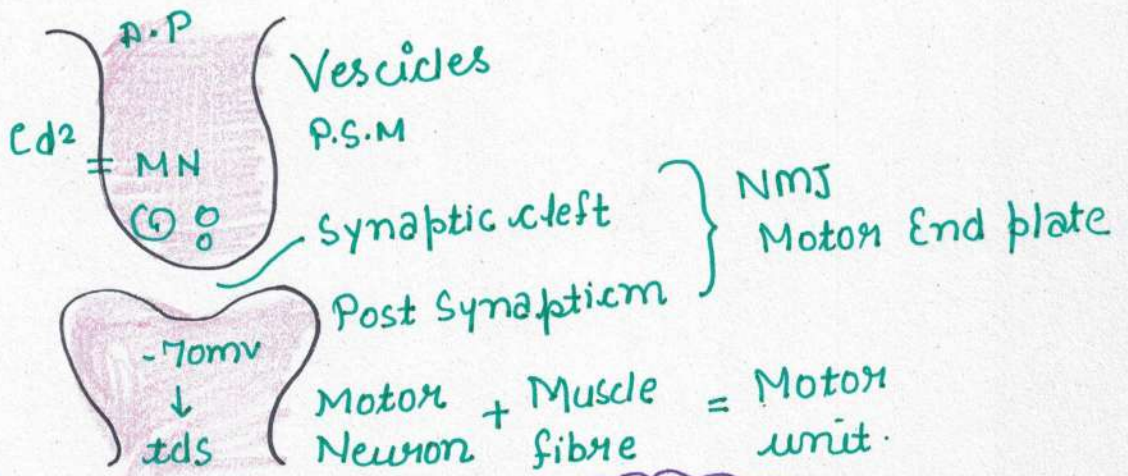 A.P
Vescicles
P.S.M
Cd²
MN
Synaptic cleft
Post Synapticm
NMJ
Motor End plate
-70mv
↓
tds
Motor Neuron + Muscle fibre = Motor unit.